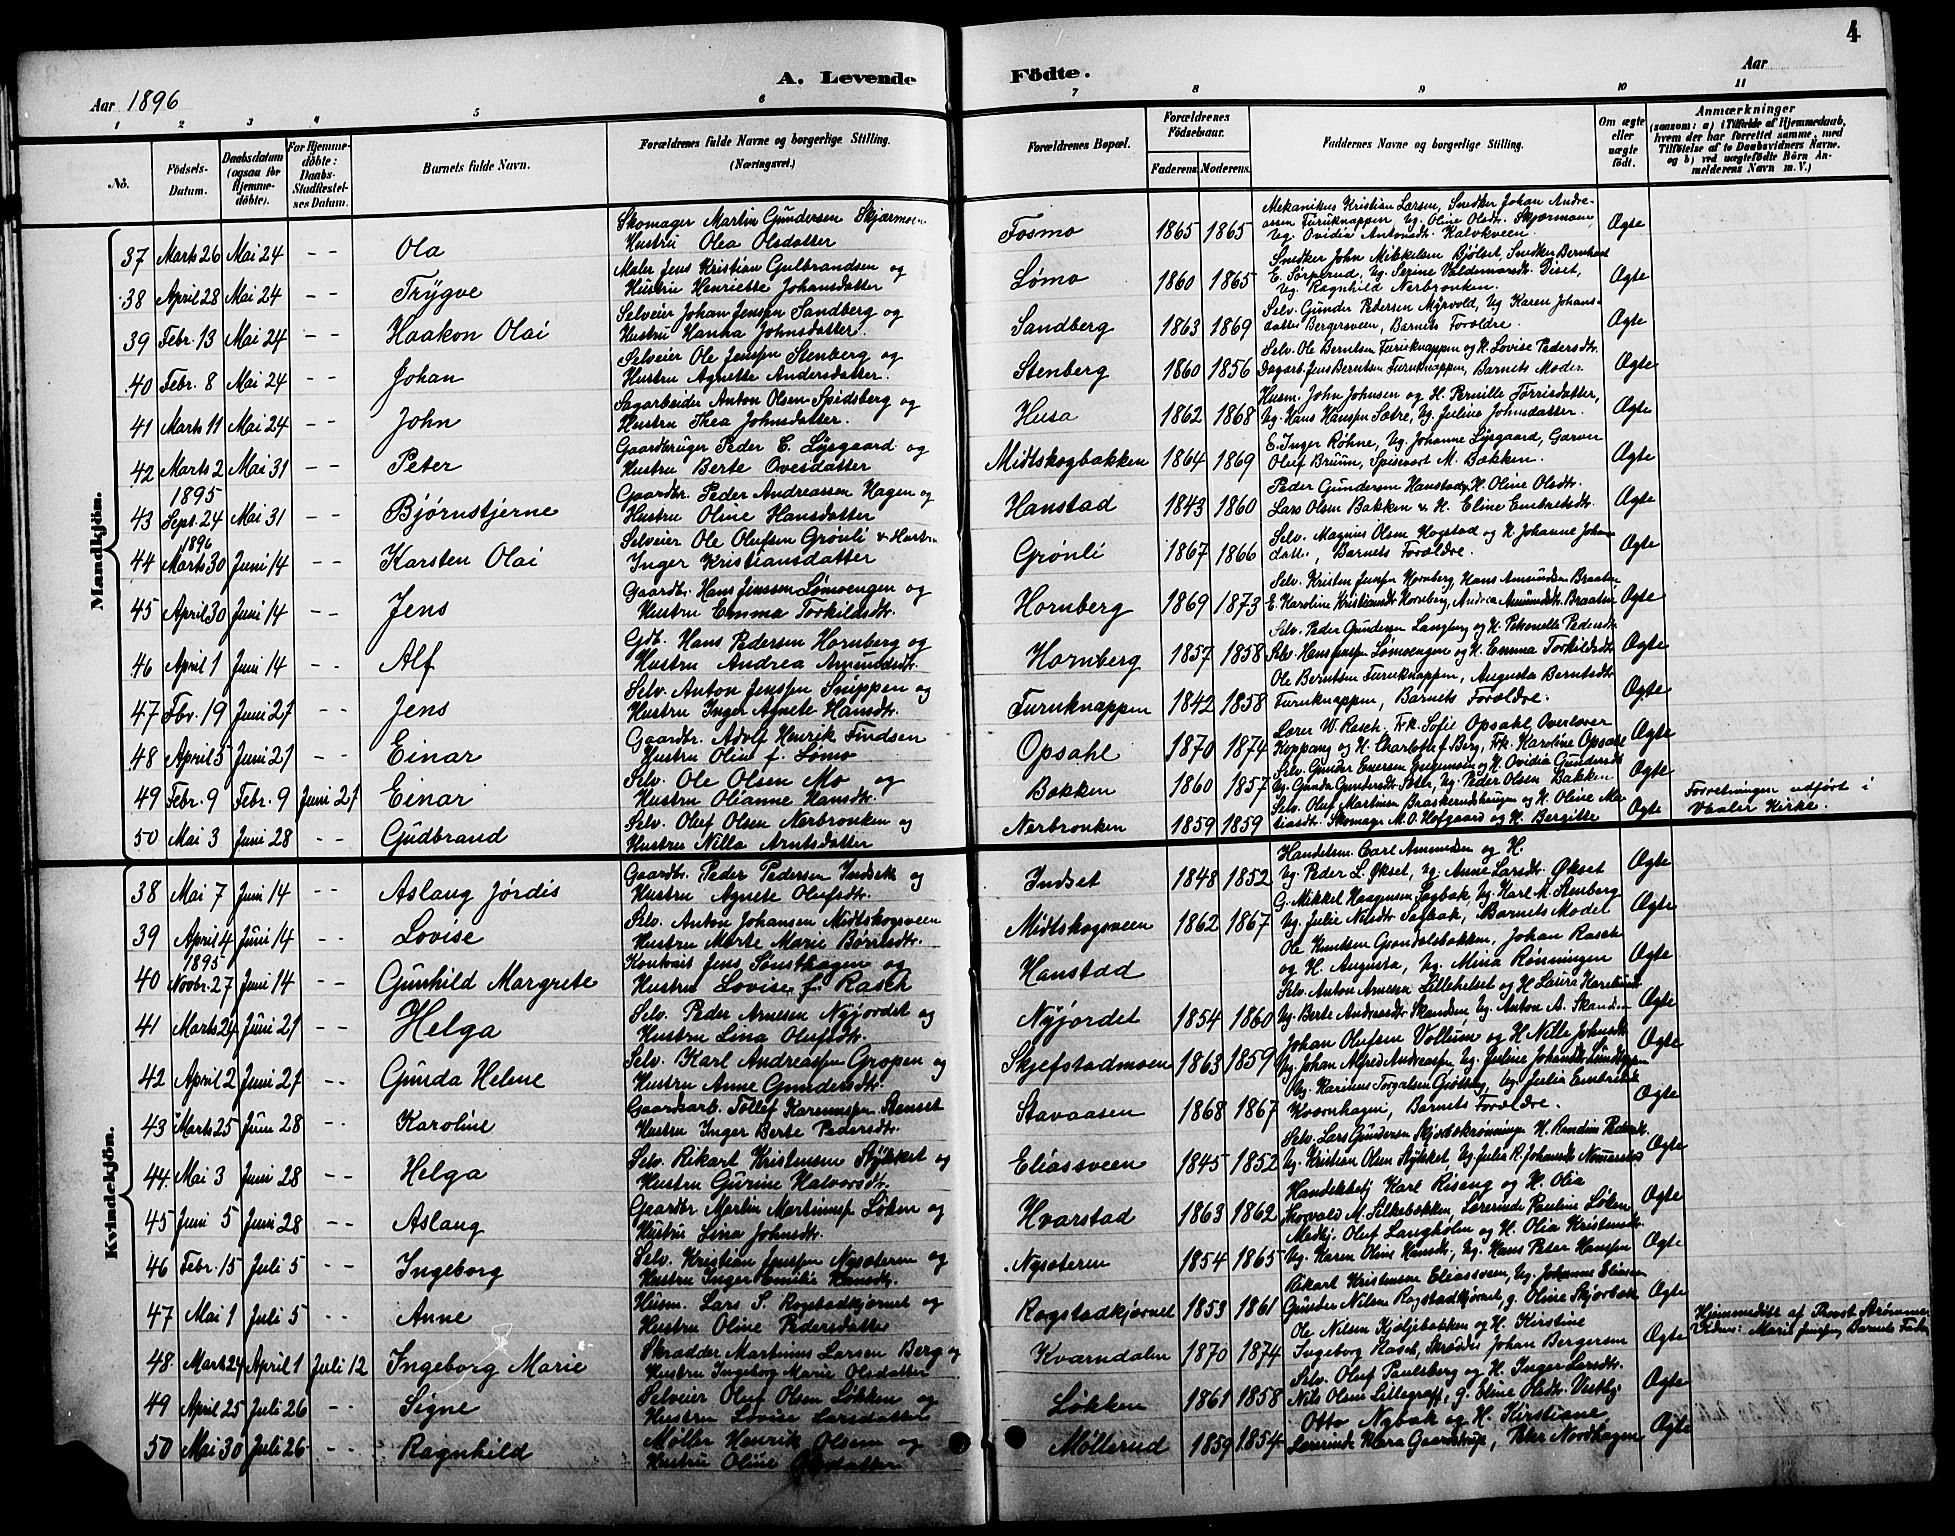 4
A. Levende Födte.
Aar 1896
Aar
1 2 3 4 5 6 7 8 9 10 11
No.
Födsels-Datum.
Daabsdatum (ogsaa for Hjemmedöbte).
For Hjemmedöbte: Daabs-Stadfæstelses Datum.
Barnets fulde Navn.
Forældrenes fulde Navne og borgerlige Stilling. (Næringsvei.)
Forældrenes Bopæl.
Forældrenes Födselsaar.
Faderens. Moderens.
Faddernes Navne og borgerlige Stilling.
Om ægte eller uægte födt.
Anmærkninger (saasom: a) i Tilfælde af Hjemmedaab, hvem der har forrettet samme, med Tilföielse af to Daabsvidners Navne, og b) ved uægtefödte Börn Anmelderens Navn m. V.)
Mandkjön.
37 Marts 26 Mai 24 - - Ola
Skomager Martin Gundersen Skjærmoen
Hustru Olea Olsdatter
Fosmo 1865 1865
Mekanikus Kristian Larsen, Snedker Johan Andre-
assen Furuknappen, Ug. Oline Olsdtr. Skjærmoen,
Ug. Ovidia Antonsdtr. Kalvkveen
Ægte
38 April 28 Mai 24 - - Trygve
Maler Jens Kristian Gulbrandsen og
Hustru Henriette Johansdatter
Lømo 1860 1865
Snedker John Mikkelsen Bjølset, Snedker Bernhard
E. Sörperud, Ug. Serine Valdemarsdtr. Diset,
Ug. Ragnhild Nerbronken.
Ægte
39 Febr. 13 Mai 24 - - Haakon Olai
Selveier Johan Jenssen Sandberg og
Hustru Hanna Johnsdatter.
Sandberg 1863 1869
Selv. Gunder Pedersen Myrvold, Ug Karen Johans-
datter Bergersveen, Barnets Forældre.
Ægte
40 Febr. 8 Mai 24 - - Johan
Selveier Ole Jenssen Stenberg og
Hustru Agnette Andersdatter.
Stenberg 1860 1856
Selv. Ole Berntsen Furuknappen og H. Lovise Pedersdtr.
Dagarb. Jens Berntsen Furuknappen, Barnets Moder
Ægte
41 Marts 11 Mai 24 - - John
Sagarbeider Anton Olsen Spidsberg og
Hustru Thea Johnsdatter.
Husa 1862 1868
Husm. John Johnsen og H. Pernille Tørrisdatter,
Ug. Hans Hansen Sætre, Ug. Juline Johnsdatter.
Ægte
42 Marts 2 Mai 31 - - Peter
Gaardbruger Peder E. Lysgaard og
Hustru Berte Ovesdatter
Midtskogbakken 1864 1869
E. Inger Røhne, Ug. Johanne Lysgaard, Garver
Oluf Bruun, Spisevært M. Bakken.
Ægte
1895
43 Sept. 24 Mai 31 - - Bjørnstjerne
Gaardbr. Peder Andreassen Hagen og
Hustru Oline Hansdatter
Hanstad 1843 1860
Peder Gundersen Hanstad, H. Oline Olsdtr.
Lars Olsen Bakken & H. Eline Embretsdtr.
Ægte
1896
44 Marts 30 Juni 14 - - Karsten Olai
Selveier Ole Olufsen Grønli & Hustru
Inger Kristiansdatter
Grønli 1867 1866
Selv. Magnus Olsen Hogstad og H. Johanne Johans-
datter, Barnets Forældre.
Ægte
45 April 30 Juni 14 - - Jens
Gaardbr. Hans Jenssen Lømoengen og
Hustru Emma Torkildsdtr.
Hornberg 1869 1873
Selv. Kristen Jenssen Hornberg, Hans Amundsen Braaten,
E. Karoline Kristiansdtr. Horneberg, Andrea Amundsdtr. Braaten
Ægte
46 April 1 Juni 14 - - Alf
Gdb. Hans Pedersen Hornberg og
Hustru Andrea Amundsdtr.
Hornberg 1857 1858
Selv. Peder Gundersen Langberg og H. Petronelle Pedersdtr.
Selv. Hans Jenssen Lømoengen og H. Emma Torkildsdtr.
Ægte
47 Fbv. 19 Juni 21 - - Jens
Selv. Anton Jenssen Snippen og
Hustru Inger Agnete Hansdtr.
Furuknappen 1842 1858
Ole Berntsen Furuknappen, Augusta Berntsdtr.
Furuknappen, Barnets Forældre.
Ægte
48 April 5 Juni 21 - - Einar
Gaardbr. Adolf Henrik Findsen
Hustru Oline f. Lømo
Opsahl 1870 1874
Lærer W. Rasch, Frk. Sofie Opsahl, Overlærer
Koppang og H. Charlotte f. Berg, Frk. Karoline Opsahl
Ægte
49 Febr. 9 Febr. 9 Juni 21 Einar
Selv. Ole Olsen Mo og
Hustru Olianne Hansdtr.
Bakken 1860 1857
Selv. Gunder Evensen og H. Ovidia Gundersdtr.
Ug. Gunda Gundersdtr. Sæter, Ug. Peder Olsen Bakken
Ægte
Forretningen udført i
Vaaler Kirke.
50 Mai 3 Juni 28 - - Gudbrand
Selv. Oluf Olsen Nerbronken og
Hustru Nilla Arntsdatter
Nerbronken 1859 1859
Selv. Oluf Martinsen Braskerudshaugen og H. Oline Ma-
tiasdtr. Skomager M. O. Hofgaard og H. Bergitte
Ægte
Kvindekjön.
38 Mai 7 Juni 14 - - Aslaug Jørdis
Gaardbr. Peder Pedersen Indset og
Hustru Agnete Olufsdtr.
Indset 1848 1852
Handelsm. Carl Amundsen og H.
Ug. Peder L. Økset, Ug. Anne Larsdtr. Økset
Ægte
39 April 4 Juni 14 - - Lovise
Selv. Anton Johansen Midtskogsveen
Hustru Marte Marie Børrilsdtr.
Midtskogsveen 1862 1867
G. Mikkel Haagensen Sagbak, Ug. Karl M. Stenberg
Ug. Julie Nilsdtr. Sagbak, Barnets Moder
Ægte
1895
40 Novbr. 27 Juni 14 - - Gunhild Margrete
Kontorist Jens Sønsthagen og
Hustru Lovise f. Rasch
Hanstad
Ole Knutsen Grøndalsbakken, Johan Rasch
og H. Augusta, Ug. Mina Rønningen
Ægte
41 Marts 24 Juni 21 - - Helga
Selv. Peder Arnesen Nyjordet og
Hustru Lina Olufsdtr.
Nyjordet 1854 1860
Selv. Anton Arnesen Lillehelset og H Laura
Ug. Berte Andreasdtr. Skanden, Ug. Anton A. Skanden
Ægte
42 April 2 Juni 21 - - Gunda Helene
Selv. Karl Andreassen Gropen og
Hustru Anne Gundersdtr.
Skjefstadmoen 1863 1859
Johan Olufsen Vollum og H Nilla Johnsdtr.
Ug. Johan Alfred Andreassen, Ug. Juline Johansdtr.
Ægte
43 Marts 25 Juni 28 - - Karoline
Gaardsarb. Tollef Karenussen Stenset
Hustru Inger Berte Pedersdtr.
Stavaasen 1868 1867
Ug. Karinus Torgalsen, Ug Julia Embretsdtr.
Barnets Forældre.
Ægte
44 Mai 3 Juni 28 - - Helga
Selv. Rikart Kristensen Stykket og
Hustru Gurine Halvorsdtr.
Eliassveen 1845 1852
Selv. Lars Gundersen Skjærbekrønningen H. Randine Pedersdtr.
Ug. Kristian Olsen Stykket, Ug. Julia R. Johansdtr.
Ægte
45 Juni 5 Juni 28 - - Aslaug
Gaardbr Martin Martinusen Løken og
Hustru Lina Johnsdtr.
Hvarstad 1863 1862
Handelsbetj Karl Riseng og H. Olia
Thorvald M. Silkebækken, Lærerinde Pauline Løken
Ægte
46 Febr. 15 Juli 5 - - Ingeborg
Selv. Kristian Jenssen Nysæteren og
Hustru Inger Emilie Hansdtr.
Nysæteren 1854 1865
Oluf Langholen og H. Olia Kristensdtr.
Ug. Karen Oline Hansdtr., Ug. Hans Peter Hansen
Ægte
47 Mai 1 Juli 5 - - Anne
Husm. Lars S. Rogstadkjernet og
Hustru Oline Pedersdatter
Rogstadkjernet 1853 1861
Rikart Kristensen Eliassveen, Ug. Johannes Eliassen
Gunder Nilsen Rogstadkjernet, g. Oline Skjærbak
Ægte
48 Marts 24 April 1 Juli 12 Ingeborg Marie
Skrædder Martinus Larsen Berg og
Hustru Ingeborg Marie Olsdatter
Kværndalen 1870 1874
Ole Nilsen Kjøljebakken og H. Kirstine
Ingeborg Raset, Skrædder Johan Bergersen
Ægte
Hjemmedöbt af Provst Strømme
Vidner: Marie Jenssen, Barnets Fader
49 April 25 Juli 26 - - Signe
Selveier Oluf Olsen Løkken og
Hustru Lovise Larsdatter
Løkken 1861 1858
Selv. Oluf Paulsberg og H. Inger Larsdtr.
Nils Olsen Lillegraff, g. Eline Olsdtr. Vestby
Ægte
50 Mai 30 Juli 26 - - Ragnhild
Møller Henrik Olsen og
Hustru Oline Olsdatter
Møllerud 1859 1854
Otto Nybak og H. Kirstiane
Laurinda Mara Gaardstrup, Peter Nordhagen
Ægte